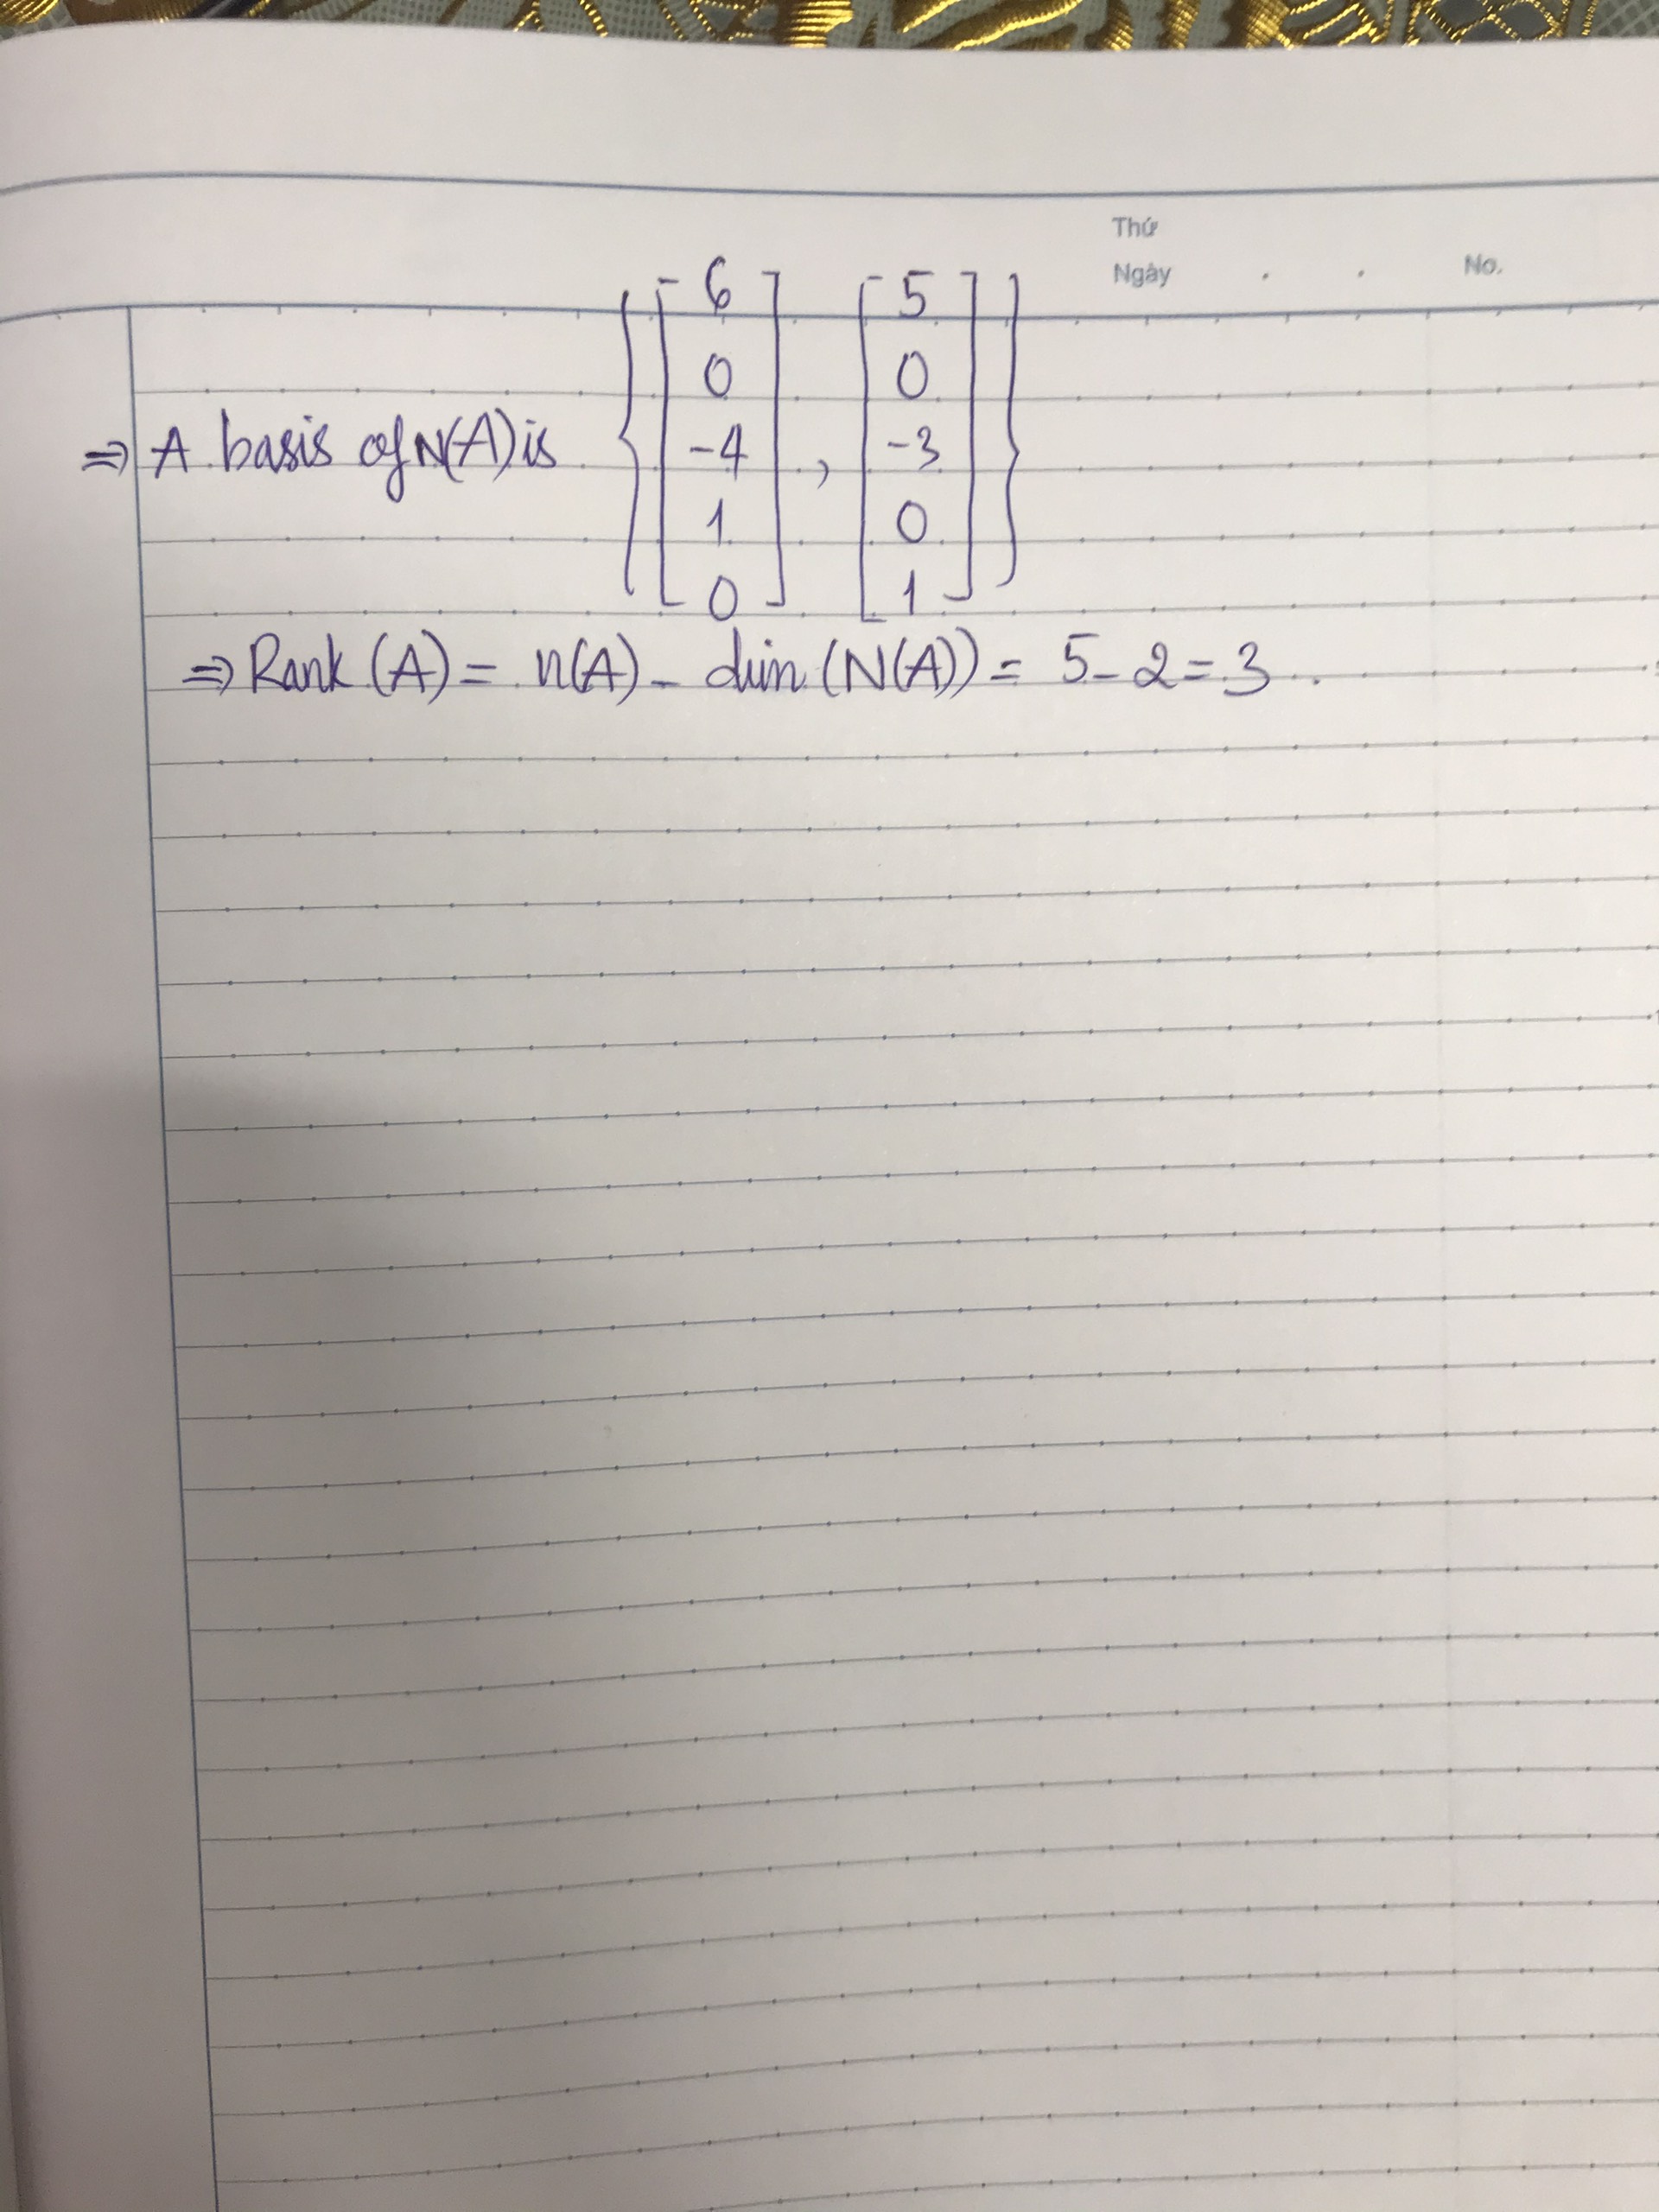 Thứ
Ngày . . No.
⇒ A basis of N(A) is { [ 6 0 -4 1 0 ] , [ 5 0 -3 0 1 ] }
⇒ Rank (A) = n(A) - dim (N(A)) = 5 - 2 = 3 .